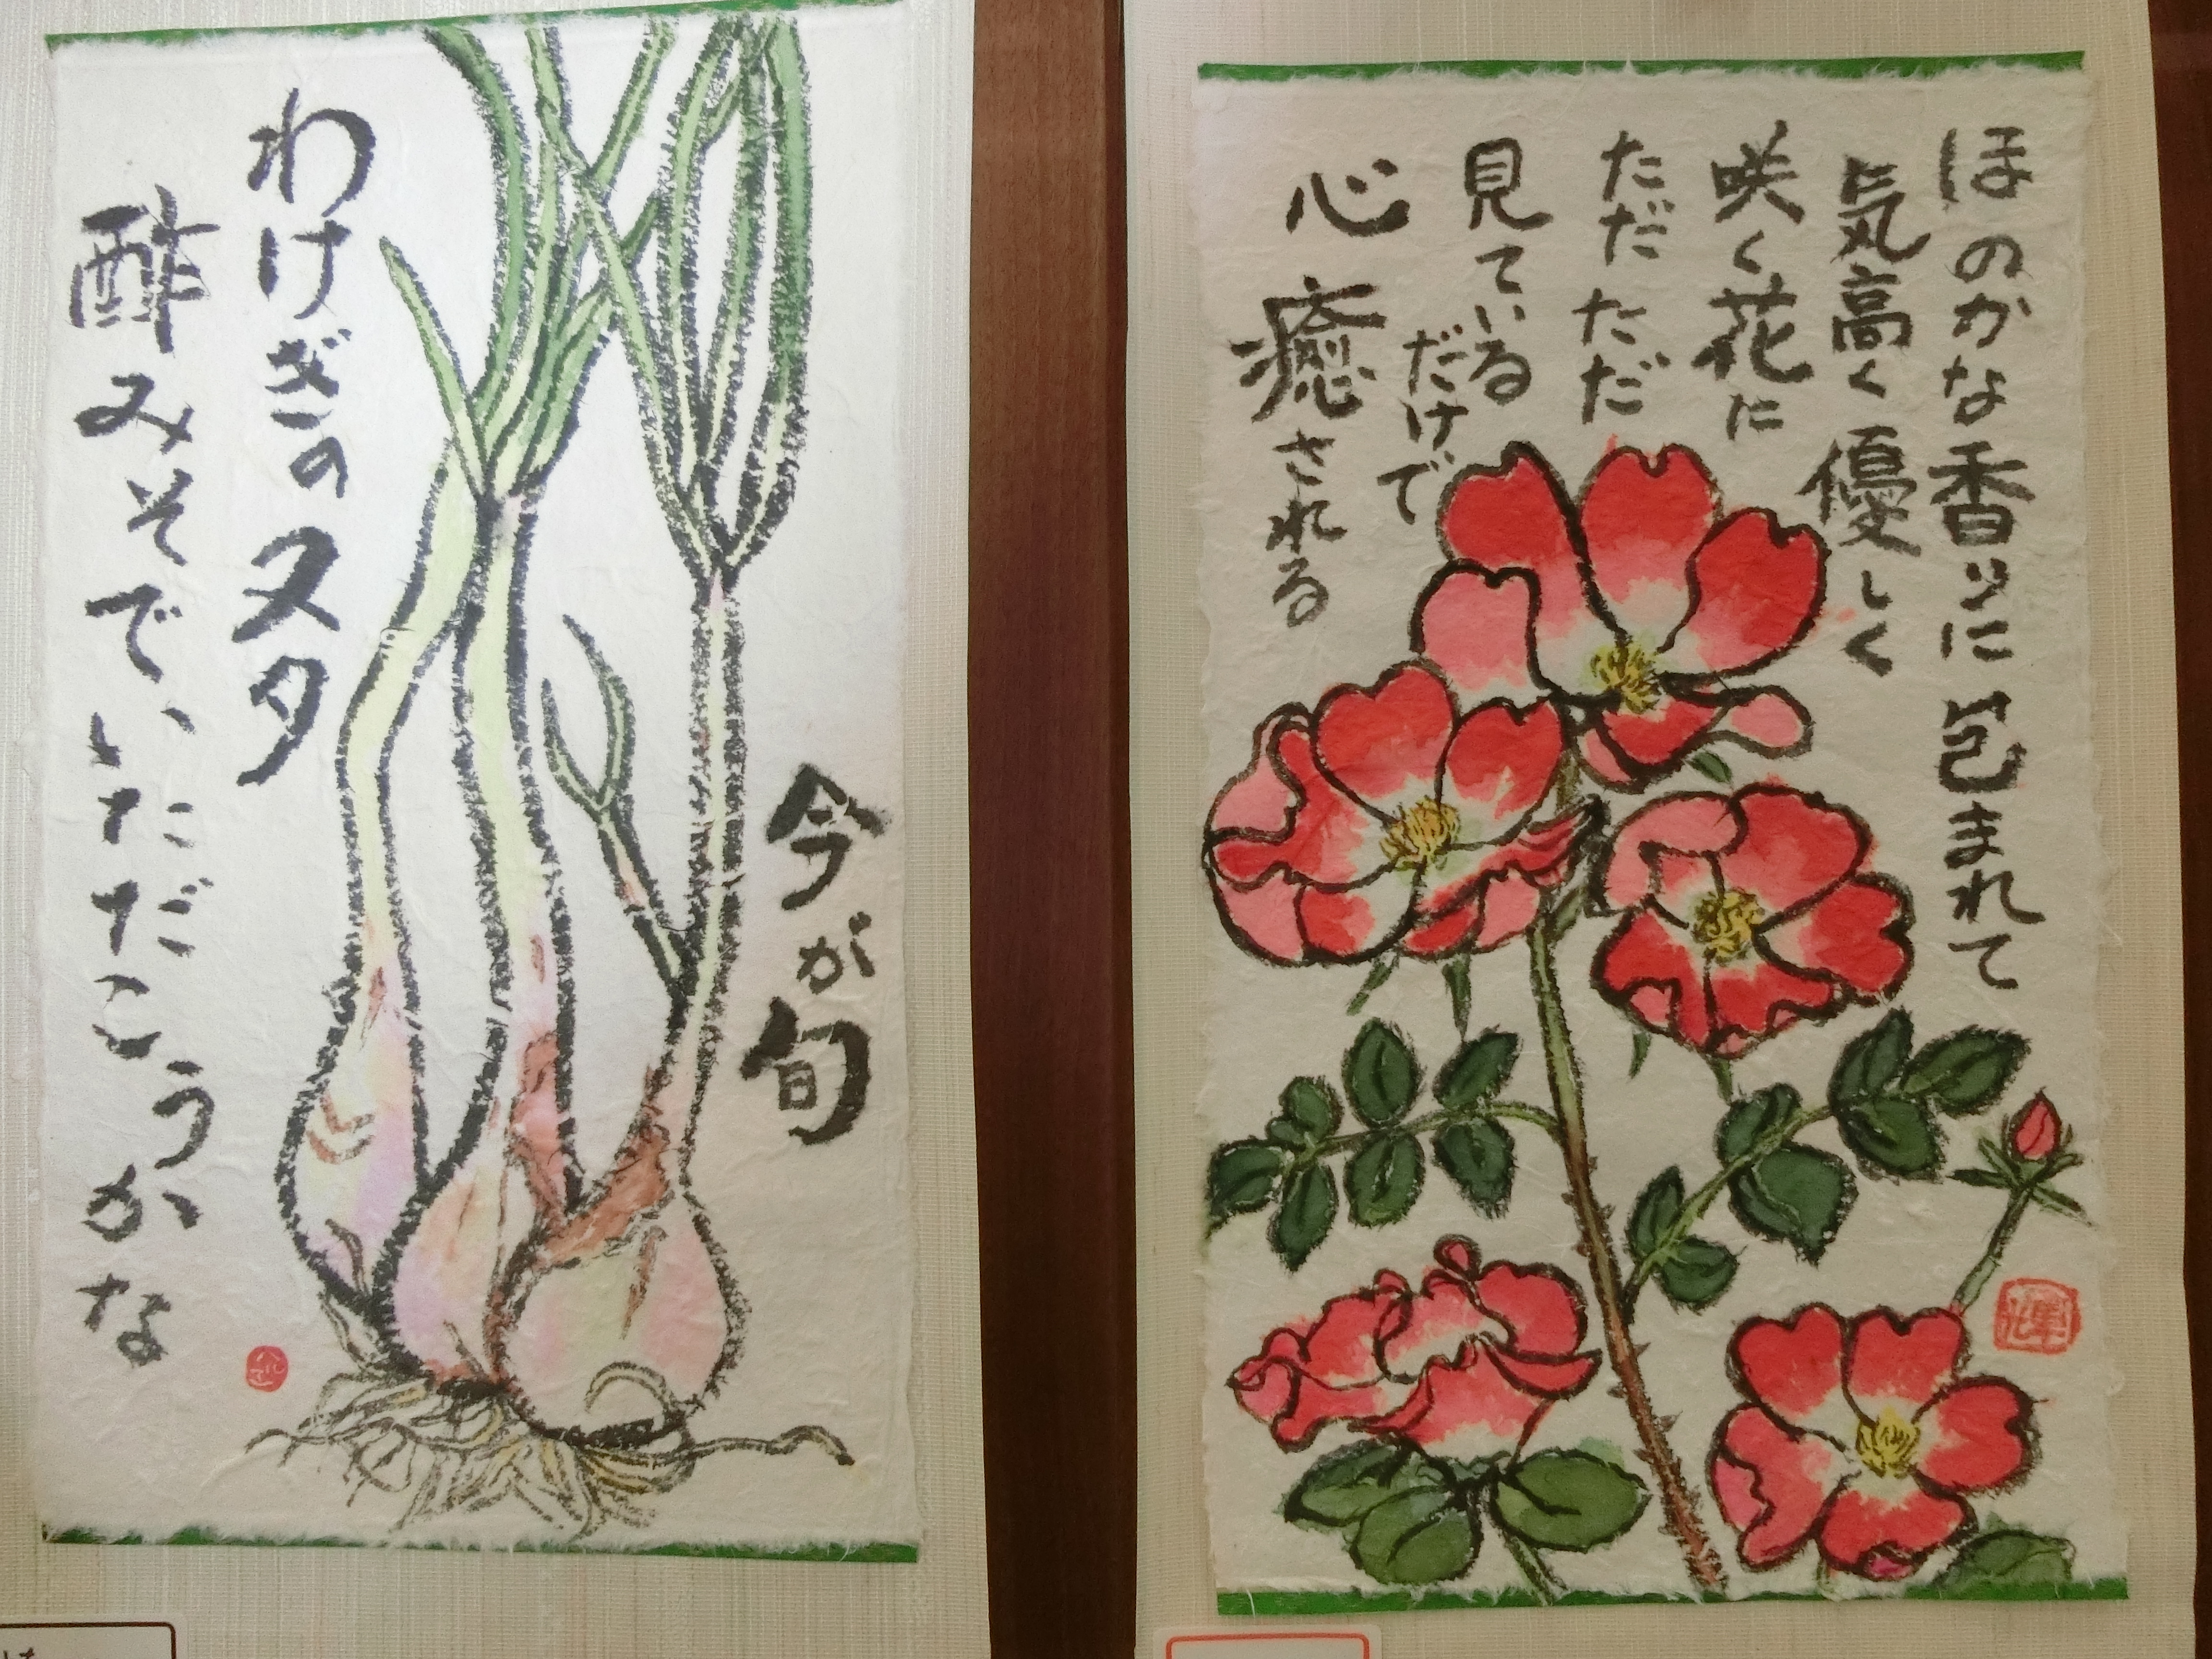 今が旬
わけぎのヌタ
酢みそでいただこうか
な
ほのかな香りに包まれて
気高く優しく
咲く花に
ただただ
見ている
だけで
心癒される
輝